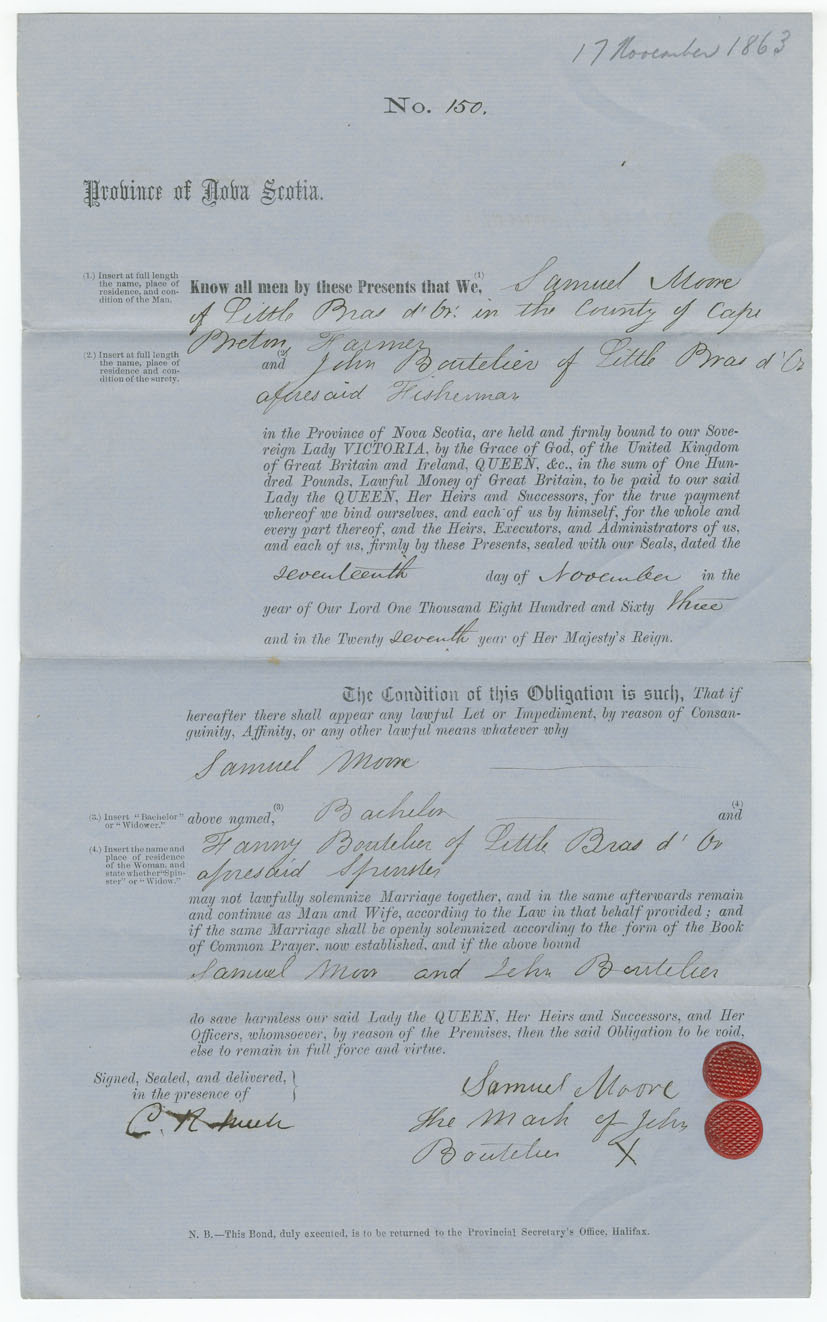 17 November 1863
No. 150.
Province of Nova Scotia.
(1.) Insert at full length
the name, place of
residence, and con-
dition of the Man.
Know all men by these Presents that We,(1) Samuel Moore
of Little Bras d'Or. in the County of Cape
Breton, Farmer
(2.) Insert at full length
the name, place of
residence and con-
dition of the surety.
and(2) John Boutelier of Little Bras d'Or
aforesaid Fisherman
in the Province of Nova Scotia, are held and firmly bound to our Sove-
reign Lady VICTORIA, by the Grace of God, of the United Kingdom
of Great Britain and Ireland, QUEEN, &c., in the sum of One Hun-
dred Pounds, Lawful Money of Great Britain, to be paid to our said
Lady the QUEEN, Her Heirs and Successors, for the true payment
whereof we bind ourselves, and each of us by himself, for the whole and
every part thereof, and the Heirs, Executors, and Administrators of us,
and each of us, firmly by these Presents, sealed with our Seals, dated the
seventeenth day of November in the
year of Our Lord One Thousand Eight Hundred and Sixty three
and in the Twenty seventh year of Her Majesty's Reign.
The Condition of this Obligation is such, That if
hereafter there shall appear any lawful Let or Impediment, by reason of Consan-
guinity, Affinity, or any other lawful means whatever why
Samuel Moore
(3.) Insert "Bachelor"
or "Widower."
above named,(3) Bachelor (4) and
(4.) Insert the name and
place of residence
of the Woman, and
state whether "Spin-
ster" or "Widow."
Fanny Boutelier of Little Bras d'Or
aforesaid Spinster
may not lawfully solemnize Marriage together, and in the same afterwards remain
and continue as Man and Wife, according to the Law in that behalf provided; and
if the same Marriage shall be openly solemnized according to the form of the Book
of Common Prayer. now established, and if the above bound
Samuel Moor and John Boutelier
do save harmless our said Lady the QUEEN, Her Heirs and Successors, and Her
Officers, whomsoever, by reason of the Premises, then the said Obligation to be void,
else to remain in full force and virtue.
Signed, Sealed, and delivered,
in the presence of
C. R.
Samuel Moore
The Mark of John
Boutelier X
N. B.—This Bond, duly executed, is to be returned to the Provincial Secretary's Office, Halifax.